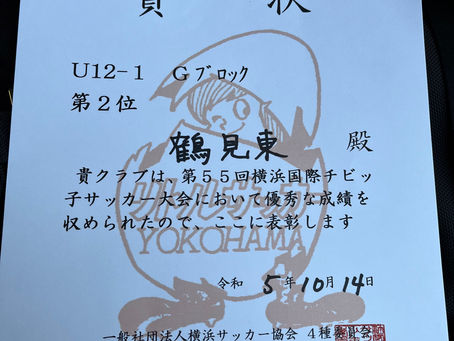 賞状
U12-1 Gブロック
第2位
鶴見東 殿
貴クラブは、第55回横浜国際チビッ
子サッカー大会において優秀な成績を
収められたので、ここに表彰します
リトルサッカー
YOKOHAMA
令和 5年10月14日
一般社団法人横浜サッカー協会 4種委員会